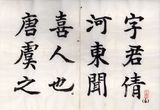 字君倩
河東聞
喜人也
唐虞之